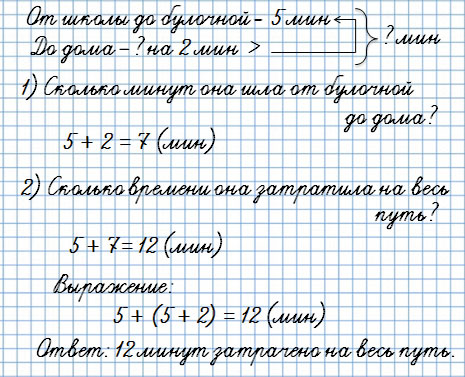 От школы до булочной - 5 мин
До дома - ? на 2 мин >
? мин
1) Сколько минут она шла от булочной
до дома?
5 + 2 = 7 (мин)
2) Сколько времени она затратила на весь
путь?
5 + 7 = 12 (мин)
Выражение:
5 + (5 + 2) = 12 (мин)
Ответ: 12 минут затрачено на весь путь.